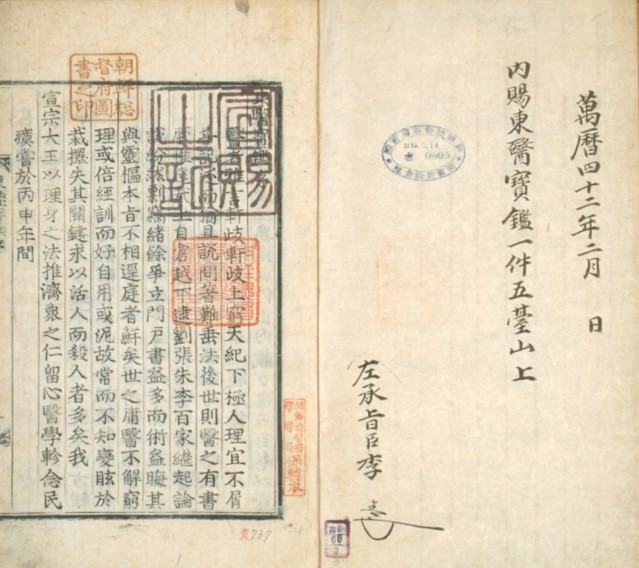 萬曆四十二年二月 日
內賜東醫寶鑑一件五臺山上
左承旨臣李
0805
朝鮮総
督府圖
書之印
宣賜
之記
軒岐軒岐上窮天紀下極人理宜不屑
而猶且說問著難垂法後世則醫之有書
上自倉越下逮劉張朱李百家繼起論
說紛然剽竊緖餘爭立門戶書益多而術益晦其
與靈樞本旨不相逕庭者鮮矣世之庸醫不解窮
理或倍經訓而好自用或泥故常而不知變眩於
裁擇失其關鍵求以活人而殺人者多矣我
宣宗大王以理身之法推濟衆之仁留心醫學軫念民
瘼嘗於丙申年間
737